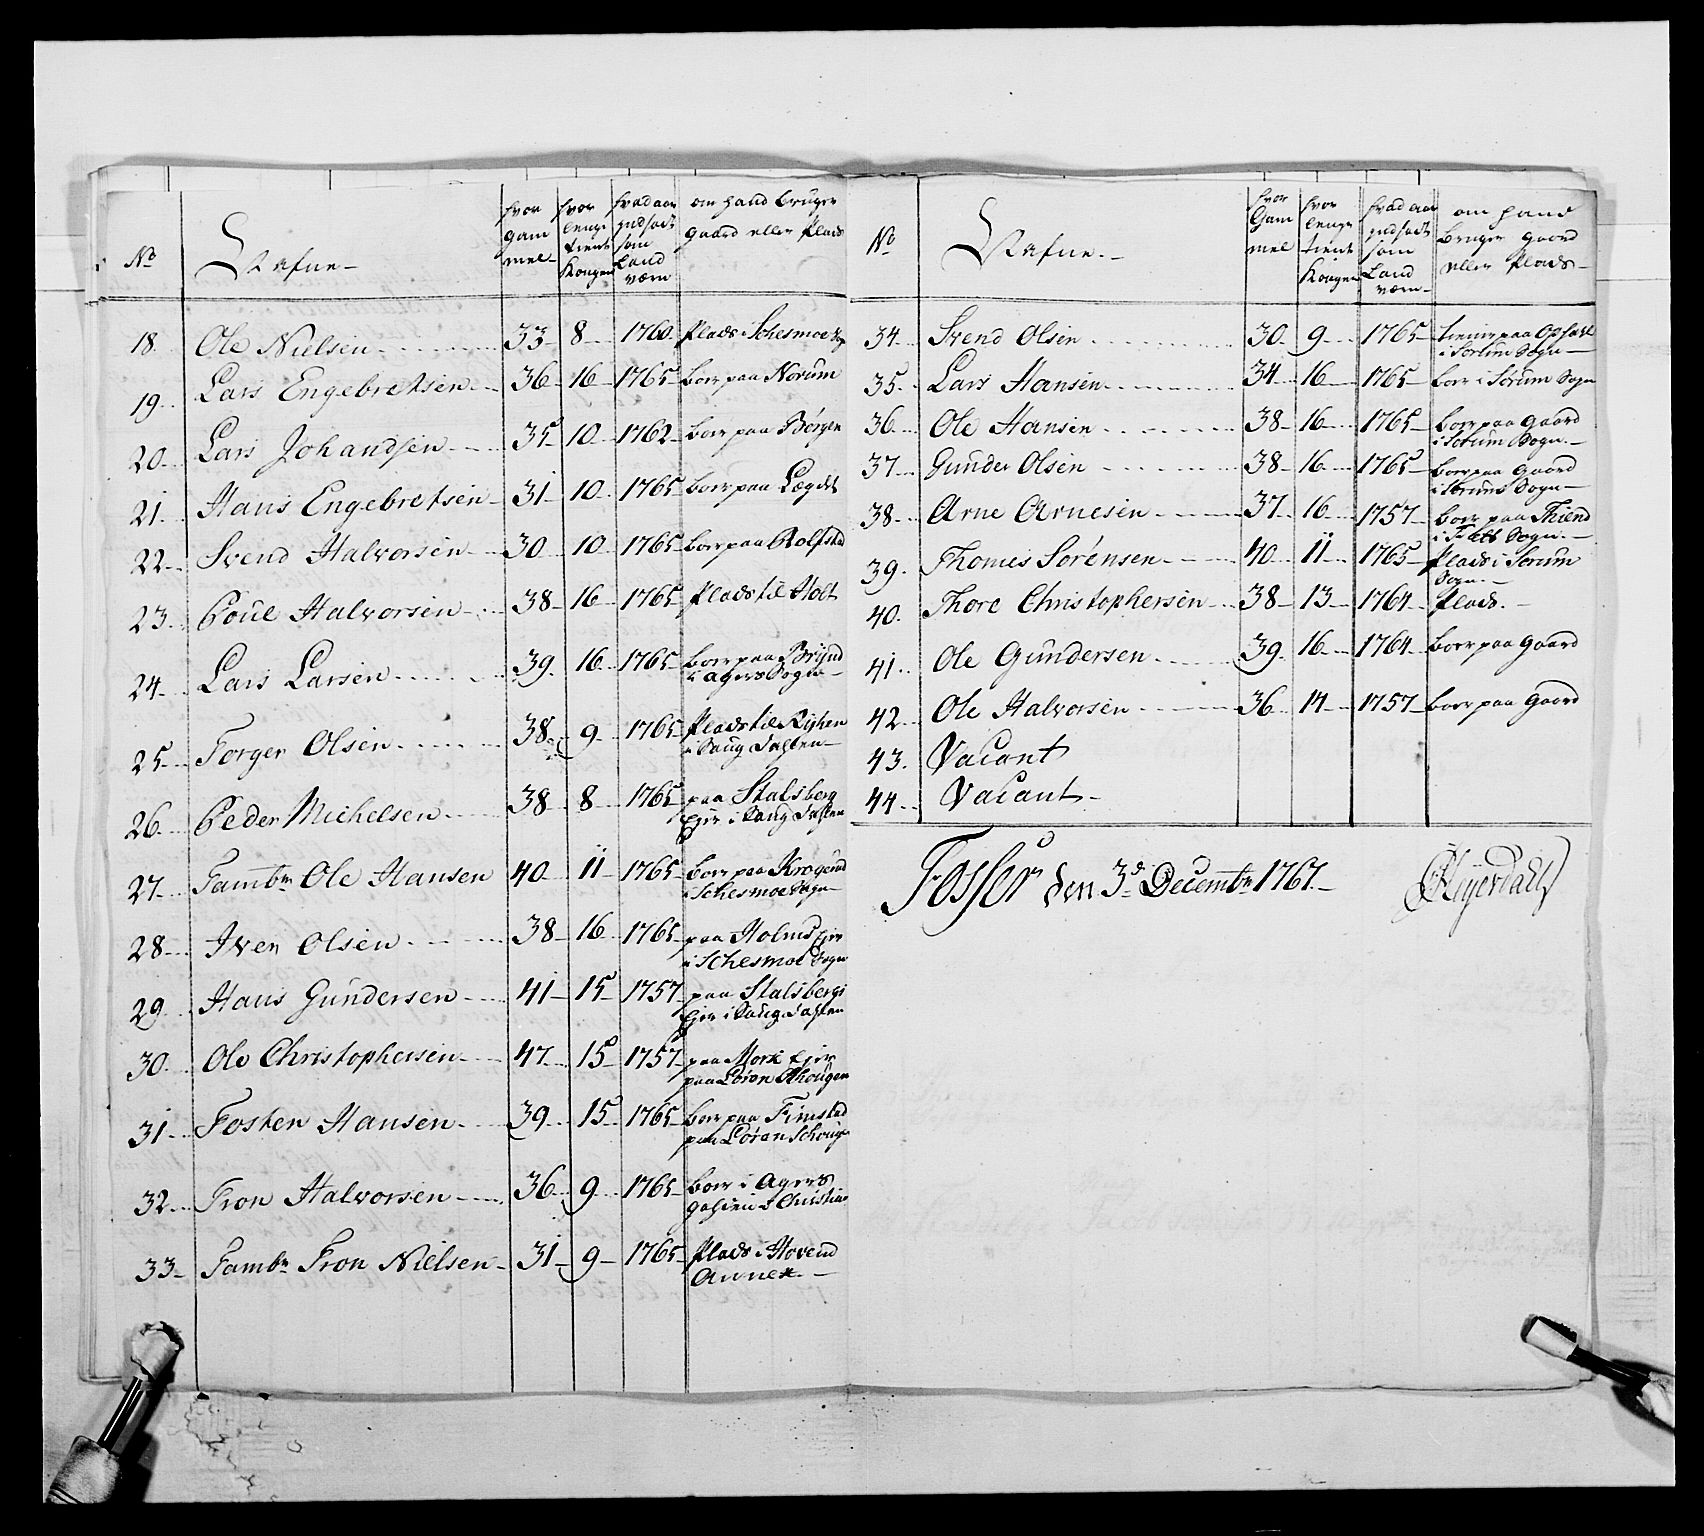 No
Nafne
hvor gam mel
hvor lenge tient Kongen
hvad aar indsadt som Land værn
om hand bruger gaard eller Plads
18. Ole Nielsen 33 8 1760 Plads i Schesmoe Sogn
19. Lars Engebretsen 36 16 1765 boer paa Norum
20. Lars Johandsen 35 10 1762 boer paa Børgen
21. Hans Engebretsen 31 10 1765 boer paa
22. Svend Halvorsen 30 10 1765 boer paa Rolfstad
23. Poul Halvorsen 38 16 1765 Plads til Holt
24. Lars Larsen 39 16 1765 boer paa Brynd
i agers Sogn
25. Torger Olsen 38 9 1765 Plads til
26. Peder Michelsen 38 8 1765 paa Stalsberg
Ejer i
27. Tambr Ole Hansen 40 11 1765 boer paa
i Schesmoe Sogn
28. Iver Olsen 38 16 1765 paa Holms Ejer
i Schesmoe Sogn
29. Hans Gundersen 41 15 1757 paa Stalsbergs
Ejer i
30. Ole Christophersen 47 15 1757 paa Mork Ejer
paa Løren Schougen
31. Tosten Hansen 39 15 1765 boer paa Fimstad
paa Løren Schoug
32. Tron Halvorsen 36 9 1765 boer i Agers
33. Tambr Tron Nielsen 31 9 1765 Plads i Hovend
Annex
No
Nafne
hvor Gam mel
hvor lenge tient Kongen
hvad aar indsadt som Land værn
om hand bruger gaard eller Plads
34. Svend Olsen 30 9 1765 tiener paa Opsahl
i Sorum Sogn
35. Lars Hansen 34 16 1765 boer i Sørum Sogn
36. Ole Hansen 38 16 1765 boer paa Gaard
i Sorum Sogn
37. Gunder Olsen 38 16 1765 boer paa Gaard
i Sorums Sogn
38. Arne Arnesen 37 16 1757 boer paa Thiend
i Fets Sogn
39. Thomes Sørensen 40 11 1765 Plads i Sorum
Sogn
40. Thore Christophersen 38 13 1764 Plads
41. Ole Gundersen 39 16 1764 boer paa Gaard
42. Ole Halvorsen 36 14 1757 boer paa Gaard
43. Vacant
44. Vacant
Fosser den 3d Decembr 1767. Heyerdahl